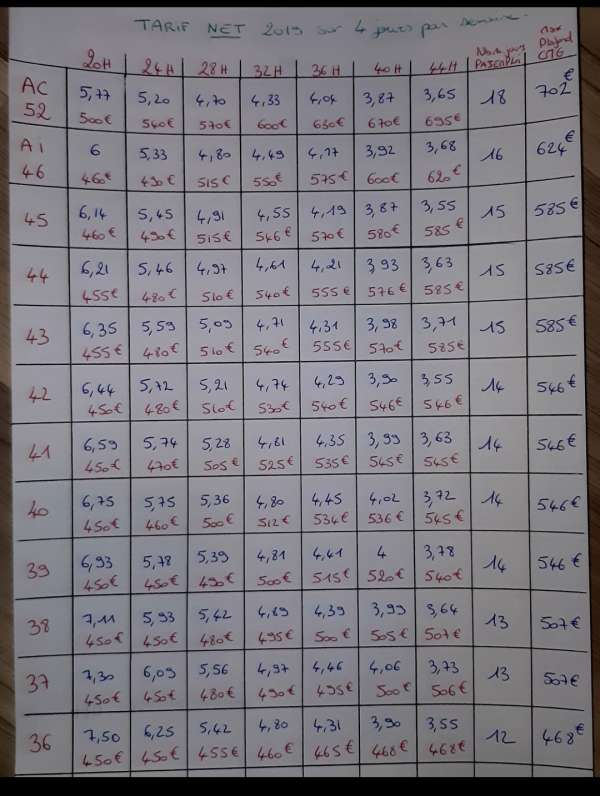 TARIF NET 2019 sur 4 jours par semaine.
20H 24H 28H 32H 36H 40H 44H Nb de jours PAJEMPLOI max Plafond CMG
AC 52 5,77 5,20 4,70 4,33 4,04 3,87 3,65 18 702€
500€ 540€ 570€ 600€ 630€ 670€ 695€
Ai 46 6 5,33 4,80 4,49 4,17 3,92 3,68 16 624€
460€ 490€ 515€ 550€ 575€ 600€ 620€
45 6,14 5,45 4,91 4,55 4,19 3,87 3,55 15 585€
460€ 490€ 515€ 546€ 570€ 580€ 585€
44 6,21 5,46 4,97 4,61 4,21 3,93 3,63 15 585€
455€ 480€ 510€ 540€ 555€ 576€ 585€
43 6,35 5,59 5,09 4,71 4,31 3,98 3,71 15 585€
455€ 480€ 510€ 540€ 555€ 570€ 585€
42 6,44 5,72 5,21 4,74 4,29 3,90 3,55 14 546€
450€ 480€ 510€ 530€ 540€ 546€ 546€
41 6,59 5,74 5,28 4,81 4,35 3,99 3,63 14 546€
450€ 470€ 505€ 525€ 535€ 545€ 545€
40 6,75 5,75 5,36 4,80 4,45 4,02 3,72 14 546€
450€ 460€ 500€ 512€ 534€ 536€ 545€
39 6,93 5,78 5,39 4,81 4,41 4 3,78 14 546€
450€ 450€ 490€ 500€ 515€ 520€ 540€
38 7,11 5,93 5,42 4,89 4,39 3,99 3,64 13 507€
450€ 450€ 480€ 495€ 500€ 505€ 507€
37 7,30 6,09 5,56 4,97 4,46 4,06 3,73 13 507€
450€ 450€ 480€ 490€ 495€ 500€ 506€
36 7,50 6,25 5,42 4,80 4,31 3,90 3,55 12 468€
450€ 450€ 455€ 460€ 465€ 468€ 468€